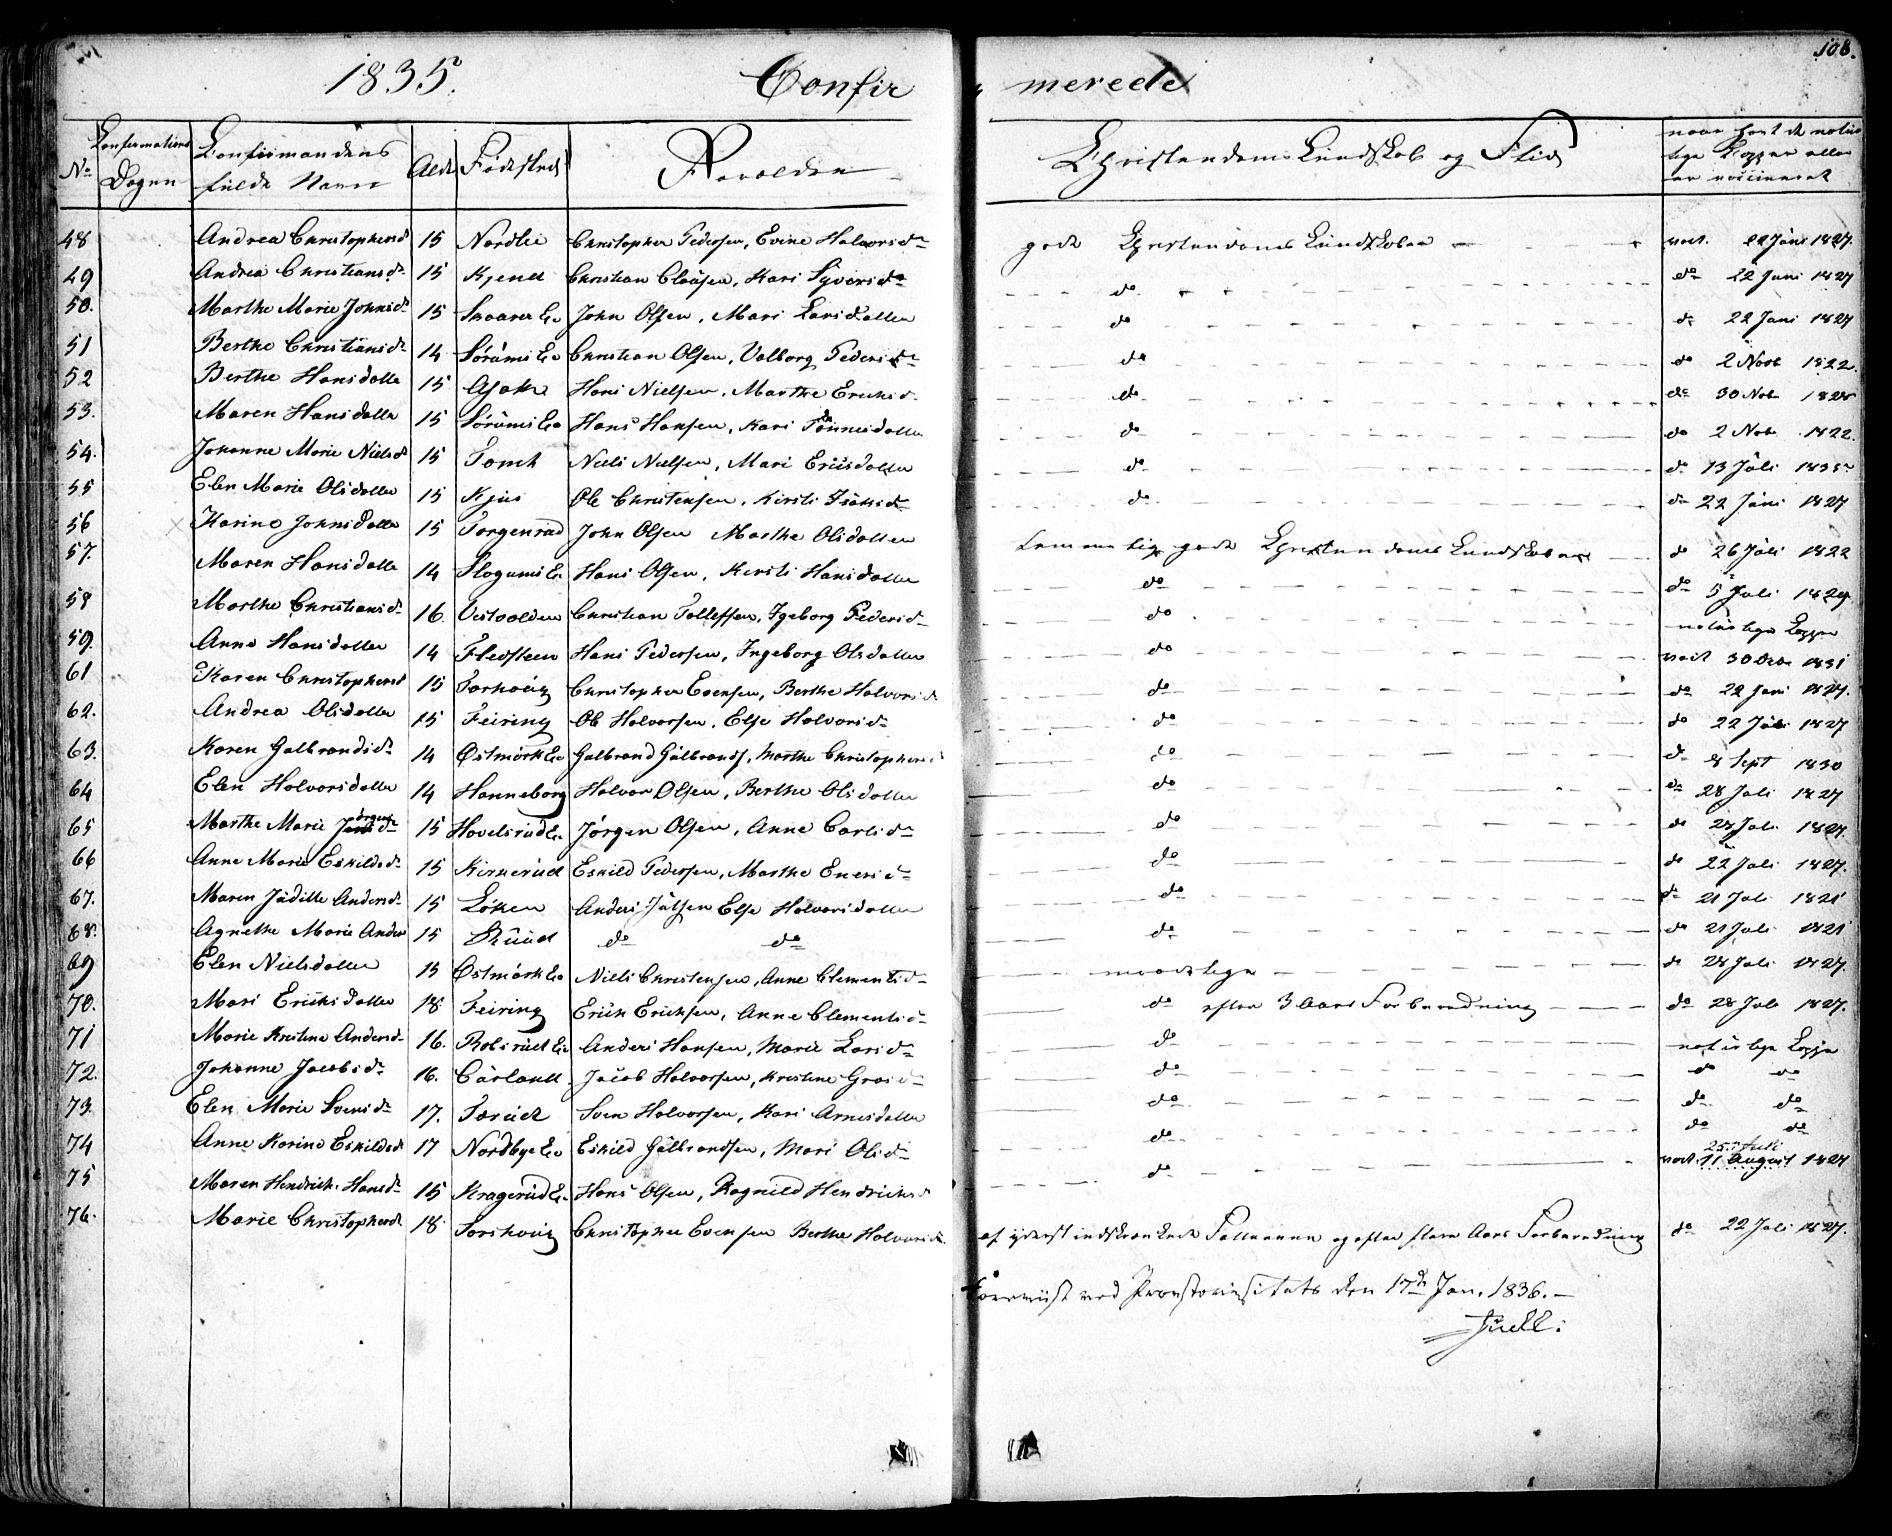 108.
1835. Confir merede
No Confirmations Dagen Confirmandens fulde Navn Alder Fødested Forældre Christendoms Kundskab og Flid naar havt de naturlige Kopper eller er vaccineret
48 Andrea Christophersd 15 Nordlie Christopher Pedersen, Evine Halvorsdr gode Christendoms Kundskaber vact. 22 Juni 1827.
49 Andrea Christiansdr 15 Kjend Christian Claüsen, Kari Syversdr do do 22 Juni 1827
50. Marthe Marie Johnsdr 15 Skaarer Ei John Olsen, Mari Larsdatter do do 22 Juni 1827
51 Berthe Christiansdr 14 Sørüms Ei Christian Olsen, Valborg Pedersdr do do 2 Novb 1822.
52 Berthe Hansdatter 15 Asak Hans Nielsen, Marthe Ericksd. do do 30 Nob
53. Maren Hansdatter 15 Sørüms Ei Hans Hansen, Kari Tønnesdatter do do 2 Nob 1822.
54. Johanne Marie Nielsd 15 Tomt Niels Nielsen, Mari Ericsdatter do do 13 Juli
55 Elen Marie Olsdatter 15 Kjus Ole Christensen, Kirsti Isaksdr do do 22 Juni 1827
56 Karine Johnsdatter 15 Torgenrud John Olsen Marthe Olsdatter temmelig gode Christendoms Kundskaber do 26 Juli 1822
57. Maren Hansdatter 14 Slogums Ei Hans Olsen, Kirsti Hansdatter do do 5 Juli 1829
58 Marthe Christiansdr 16. Vestvolden Christian Tollefsen, Igeborg Pedersdr do naturlige Kopper
59. Anne Hansdatter 14 Fledsteen Hans Pedersen, Ingeborg Olsdatter do vact 30 Octb 1831
61 Karen Christophersd 15 Torshoug Christopher Evensen, Berthe Halvorsd do do 22 Juni 1827.
62. Andrea Olsdatter 15 Feiring Ole Halvorsen, Else Halvorsdr do do 22 Juli 1827
63. Karen Gulbrandsdr 14 Østmork Ei Gulbrand Gulbrands, Marthe Christophersd do do 8 Sept 1830
64 Elen Halvorsdatter 14 Hanneborg Halvor Olsen, Berthe Olsdatter do do 28 Juli 1827
65 Marthe Marie Jørgensdr 15 Hovelsrud Ei Jørgen Olsen, Anne Carlsdr do do 28 Juli 1827.
66 Anne Marie Eskildsdr 15 Kirkerud Eskild Pedersen, Marthe Enersdr do do 22 Juli 1827.
67. Maren Jüditte Andersdr 15 Løken Anders Jülsen Else Halvorsdatter do do 21 Juli 1821
68. Agnethe Marie Anders 15 Rüüd do do do do 21 Juli 1821
69 Elen Nielsdatter 15 Østmork Ei Niels Christensen, Anne Clementsdr maadelige do 28 Juli 1827.
70. Mari Ericksdatter 18 Feiring Erick Ericksen, Anne Clementsdr do efter 3 Aars Forberedning do 28 Juli 1827.
71 Marie Kristine Andersdr 16. Rolsrud Ei Anders Hansen, Marie Larsdr do naturlige Kopper
72. Johanne Jacobsdr 16. Jacob Halvorsen, Kristine do do do
73. Elen Marie Svensdr 17. Tærud Sven Halvorsen, Kari Arnesdatter do do do
74 Anne Karine Eskildsd 17 Nordbye Ei Eskild Gülbrandsen, Mari Olsdr do do do
75 Maren Hendrick. Hansdr 15 Kragerud Ei Hans Olsen, Ragnild Hendricksd do 25. Juli vact. 11 August 1827
76. Marie Christophersdr 18. Torshoug Christopher Evensen Berthe Halvorsdr af yderst indskrænkede Sattevner og efter flere Aars Forberedning do 22 Juli 1827.
Foreviist ved Provstevisitats den 17de Jan. 1836. –
Juell.